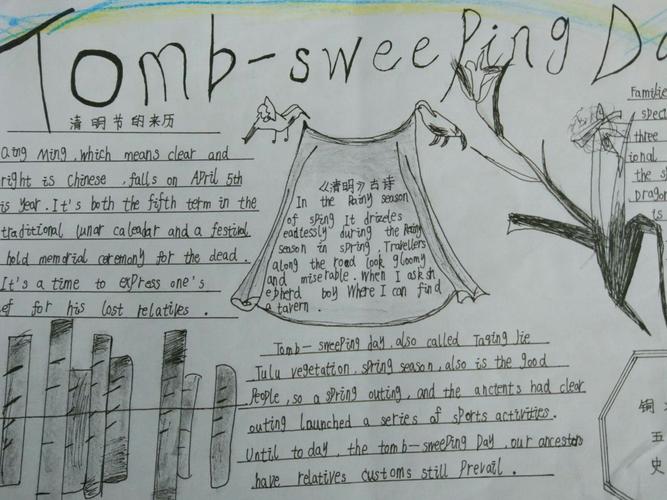 Tomb-sweeping Da
清明节的来历
Qing Ming, which means clear and
right is Chinese, falls on April 5th
is year. It's both the fifth term in the
traditional lunar caleadar and a festival
hold memorial ceremony for the dead.
It's a time to express one's
ef for his lost relatives.
《清明》古诗
In the Rainy season
of sping It drizeles
eadtessly during the Rainy
season in spring. Travellers
along the road look gloomy
and miserable. When I ask sh
epherd boy Where I can find
a tavern.
Familie
spect
three
ional
the s
Dragon
is
Tomb-sweeping day, also called Taqing jie
Tulu vegetation, spring season, also is the good
People, so a spring outing, and the ancients had clear
outing launched a series of sports activities.
Until today, the tomb-sweeping Day, our ancestors
have relatives customs still Prevail.
铜
五
史